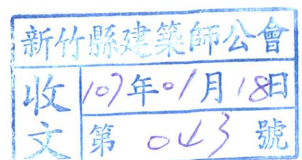 新竹縣建築師公會
收文 107年01月18日
第 043 號